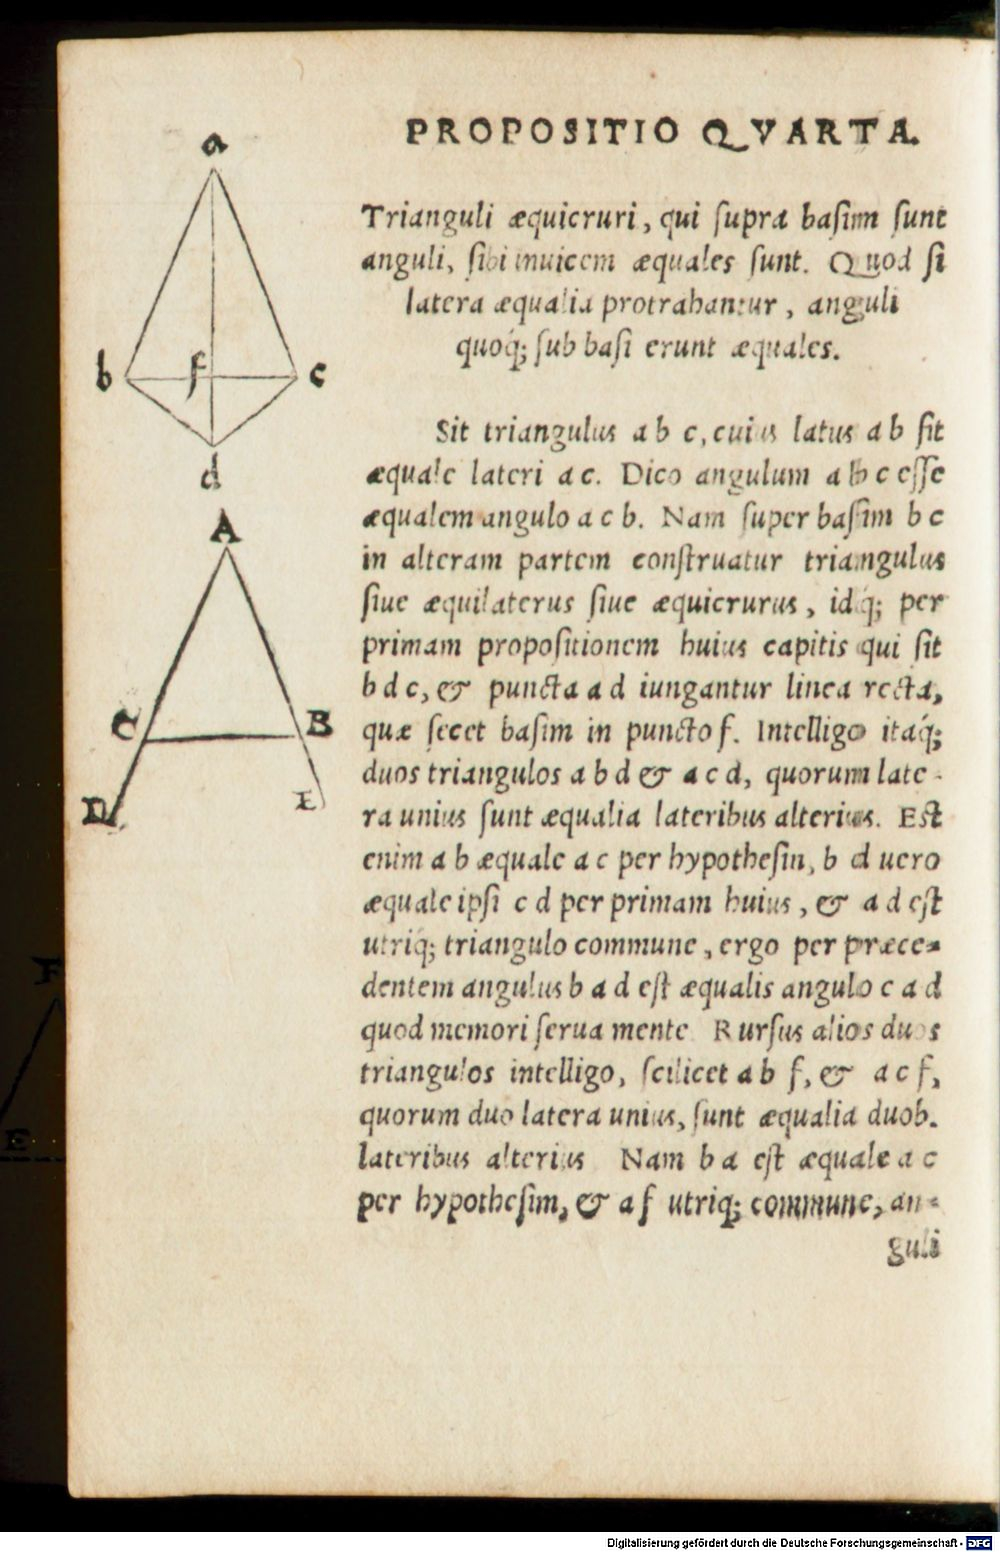 PROPOSITIO QVARTA.
Trianguli æquicruri, qui supra basim sunt
anguli, sibi inuicem æquales sunt. Quod si
latera æqualia protrahantur, anguli
quoq́; sub basi erunt æquales.
Sit triangulus a b c, cuius latus a b sit
æquale lateri a c. Dico angulum a b c esse
æqualem angulo a c b. Nam super basim b c
in alteram partem construatur triangulus
siue æquilaterus siue æquicrurus, idq́; per
primam propositionem huius capitis qui sit
b d c, & puncta a d iungantur linea recta,
quæ secet basim in puncto f. Intelligo itaq́;
duos triangulos a b d & a c d, quorum late-
ra unius sunt æqualia lateribus alterius. Est
enim a b æquale a c per hypothesin, b d uero
æquale ipsi c d per primam huius, & a d est
utriq́; triangulo commune, ergo per præce-
dentem angulus b a d est æqualis angulo c a d
quod memori serua mente Rursus alios duos
triangulos intelligo, scilicet a b f, & a c f,
quorum duo latera unius, sunt æqualia duob.
lateribus alterius Nam b a est æquale a c
per hypothesim, & a f utriq; commune, an-
guli
a
b
f
c
d
A
C
B
D
E
F
E
Digitalisierung gefördert durch die Deutsche Forschungsgemeinschaft - DFG